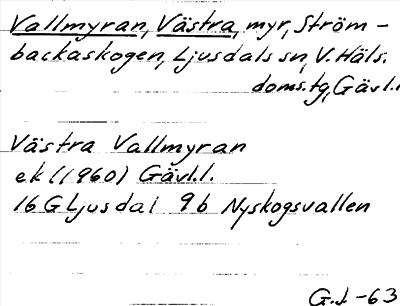 Vallmyran, Västra, myr, Ström-
backaskogen, Ljusdals sn, V. Häls.
doms.tg, Gävl.l.
Västra Vallmyran
ek (1960) Gävl.l.
16 G Ljusdal 9b Nyskogsvallen
G.J-63